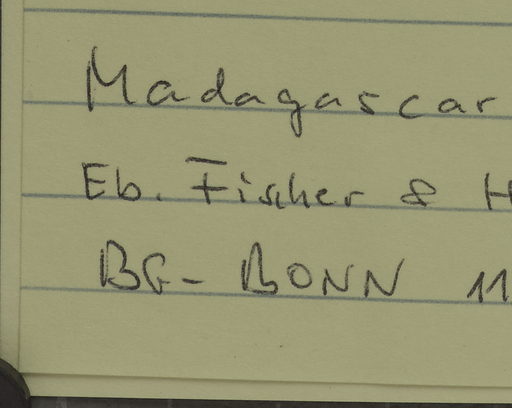 Madagascar
Eb. Fischer & H
BG-BONN 11